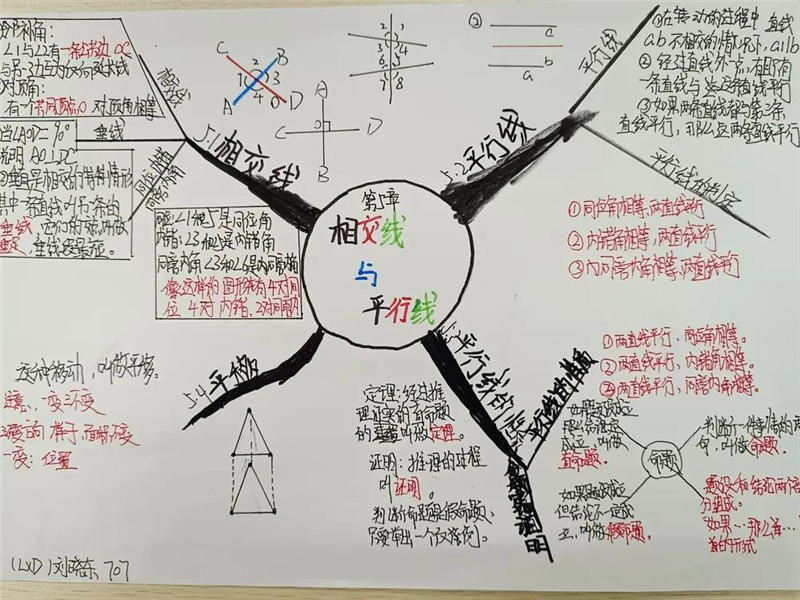 第5章
相交线
与
平行线
5.1相交线
相交线
邻补角:
∠1与∠2有一条公共边OC
对顶角:
有一个共同顶点O 对顶角相等
垂线
当∠AOD=90°
说明 AO⊥DC
其中一条直线叫另一条的
垂线,它们的交点叫做
垂足,垂线段最短。
同位角
内错角
同旁内角
同位:∠1和∠5是同位角
内错:∠3和∠5是内错角
同旁内角∠3和∠6是同旁内角
像这样的图形共有4对同
位 4对内错,2对同旁内
C
B
2
1
3
4
A
O
D
A
C
D
B
2
1
3
4
6
5
7
8
③
c
b
a
5.2平行线
平行线
①在转动的过程中 直线
a.b不相交的情况下,a∥b
②经过直线外一点,有且只有
一条直线与这条直线平行
③如果两条直线都与第三条
直线平行,那么这两条直线平行
平行线的判定
①同位角相等,两直线平行
②内错角相等,两直线平行
③同旁内角相等,两直线平行
5.3平行线的性质
平行线的性质
①两直线平行,同位角相等。
②两直线平行,内错角相等。
③两直线平行,同旁内角相等。
命题
判断一件事情的语
句,叫做命题。
题设和结论两部
分组成。
如果……那么……
的形式
如果题设成立
那么结论
成立,叫做
真命题。
如果题设成立
但结论不一定成
立,叫做假命题。
定理:经过推
理证实的真命题
的 叫做定理。
证明:推理的过程
叫证明。
判断命题是假命题,
只要举出一个反例。
5.4平移
这种移动,叫做平移。
注意:一变三不变
一变:位置
(LXD)刘晓东 707